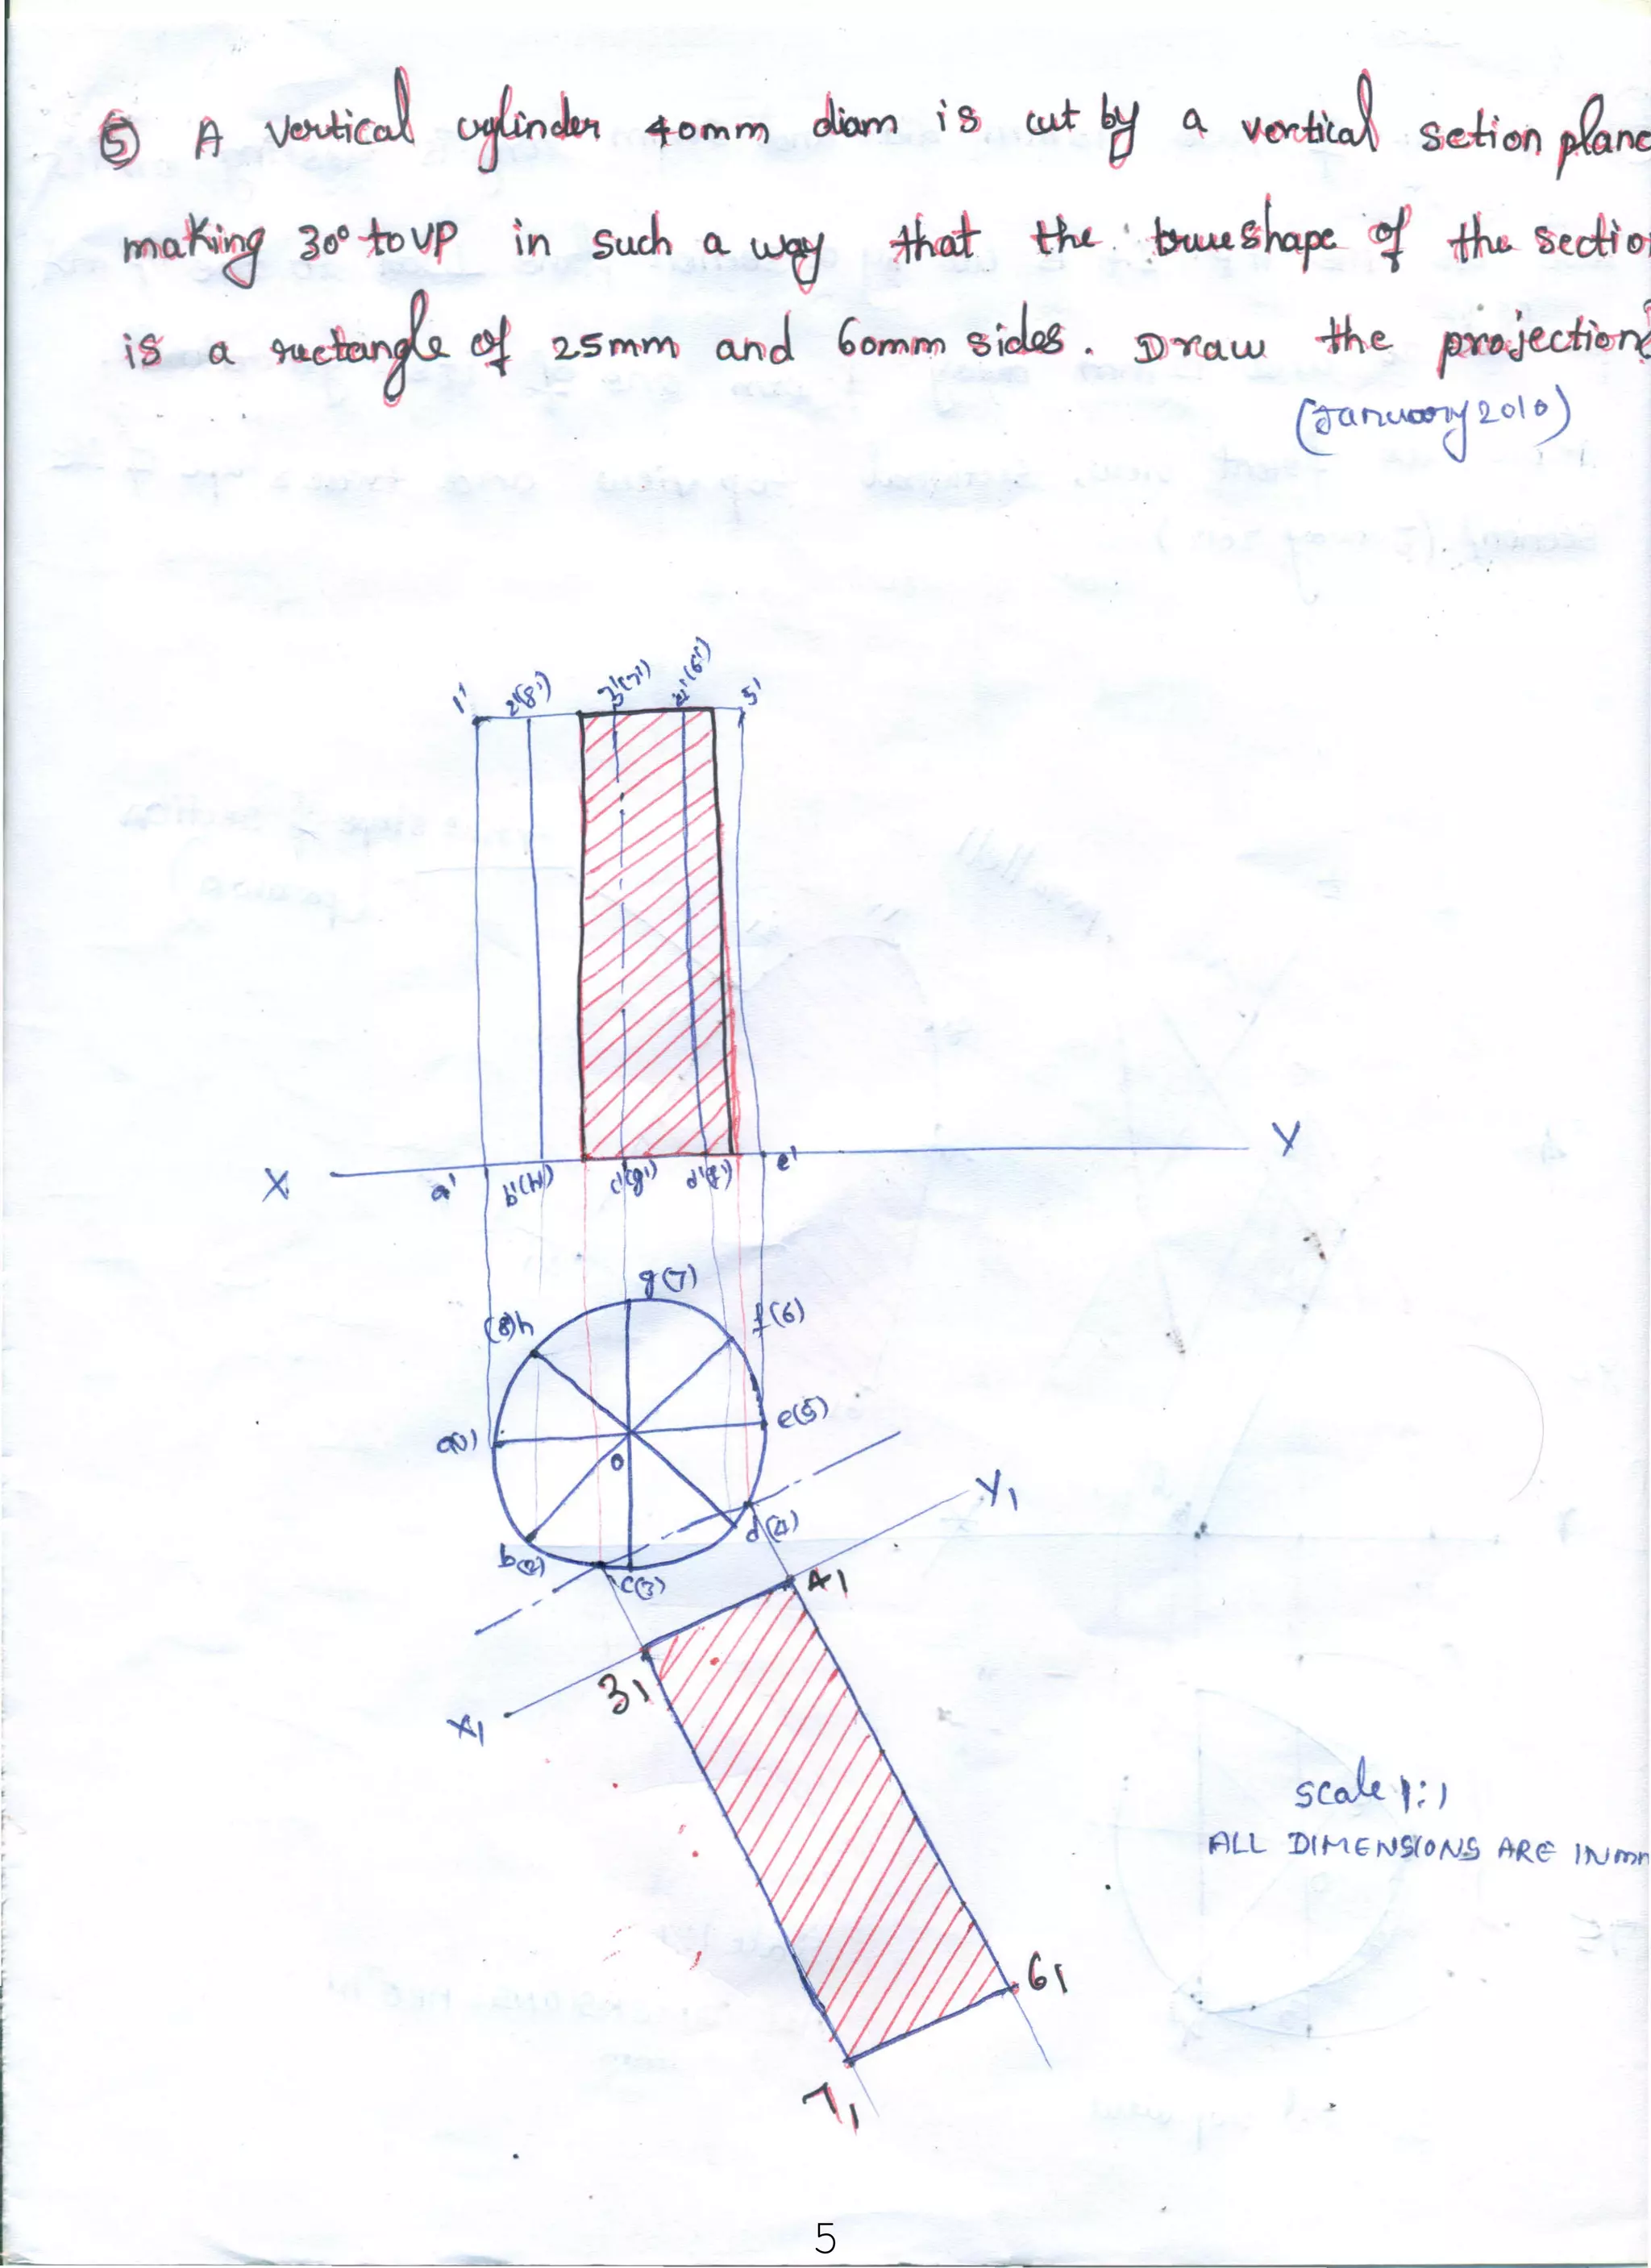 ⑤ A Vertical cylinder 40mm diam is cut by a vertical setion plane
making 30° to VP in such a way that the trueshape of the section
is a rectangle of 25mm and 60mm sides. Draw the projections
(January 2010)
1' 2'(8') 3'(7') 4'(6') 5'
X Y
a' b'(h') c'(g') d'(f') e'
g(7)
(8)h f(6)
a(1) e(5)
o
Y1
b(2) c(3) d(4)
41
31
X1
scale 1:1
ALL DIMENSIONS ARE IN mm
61
71
5